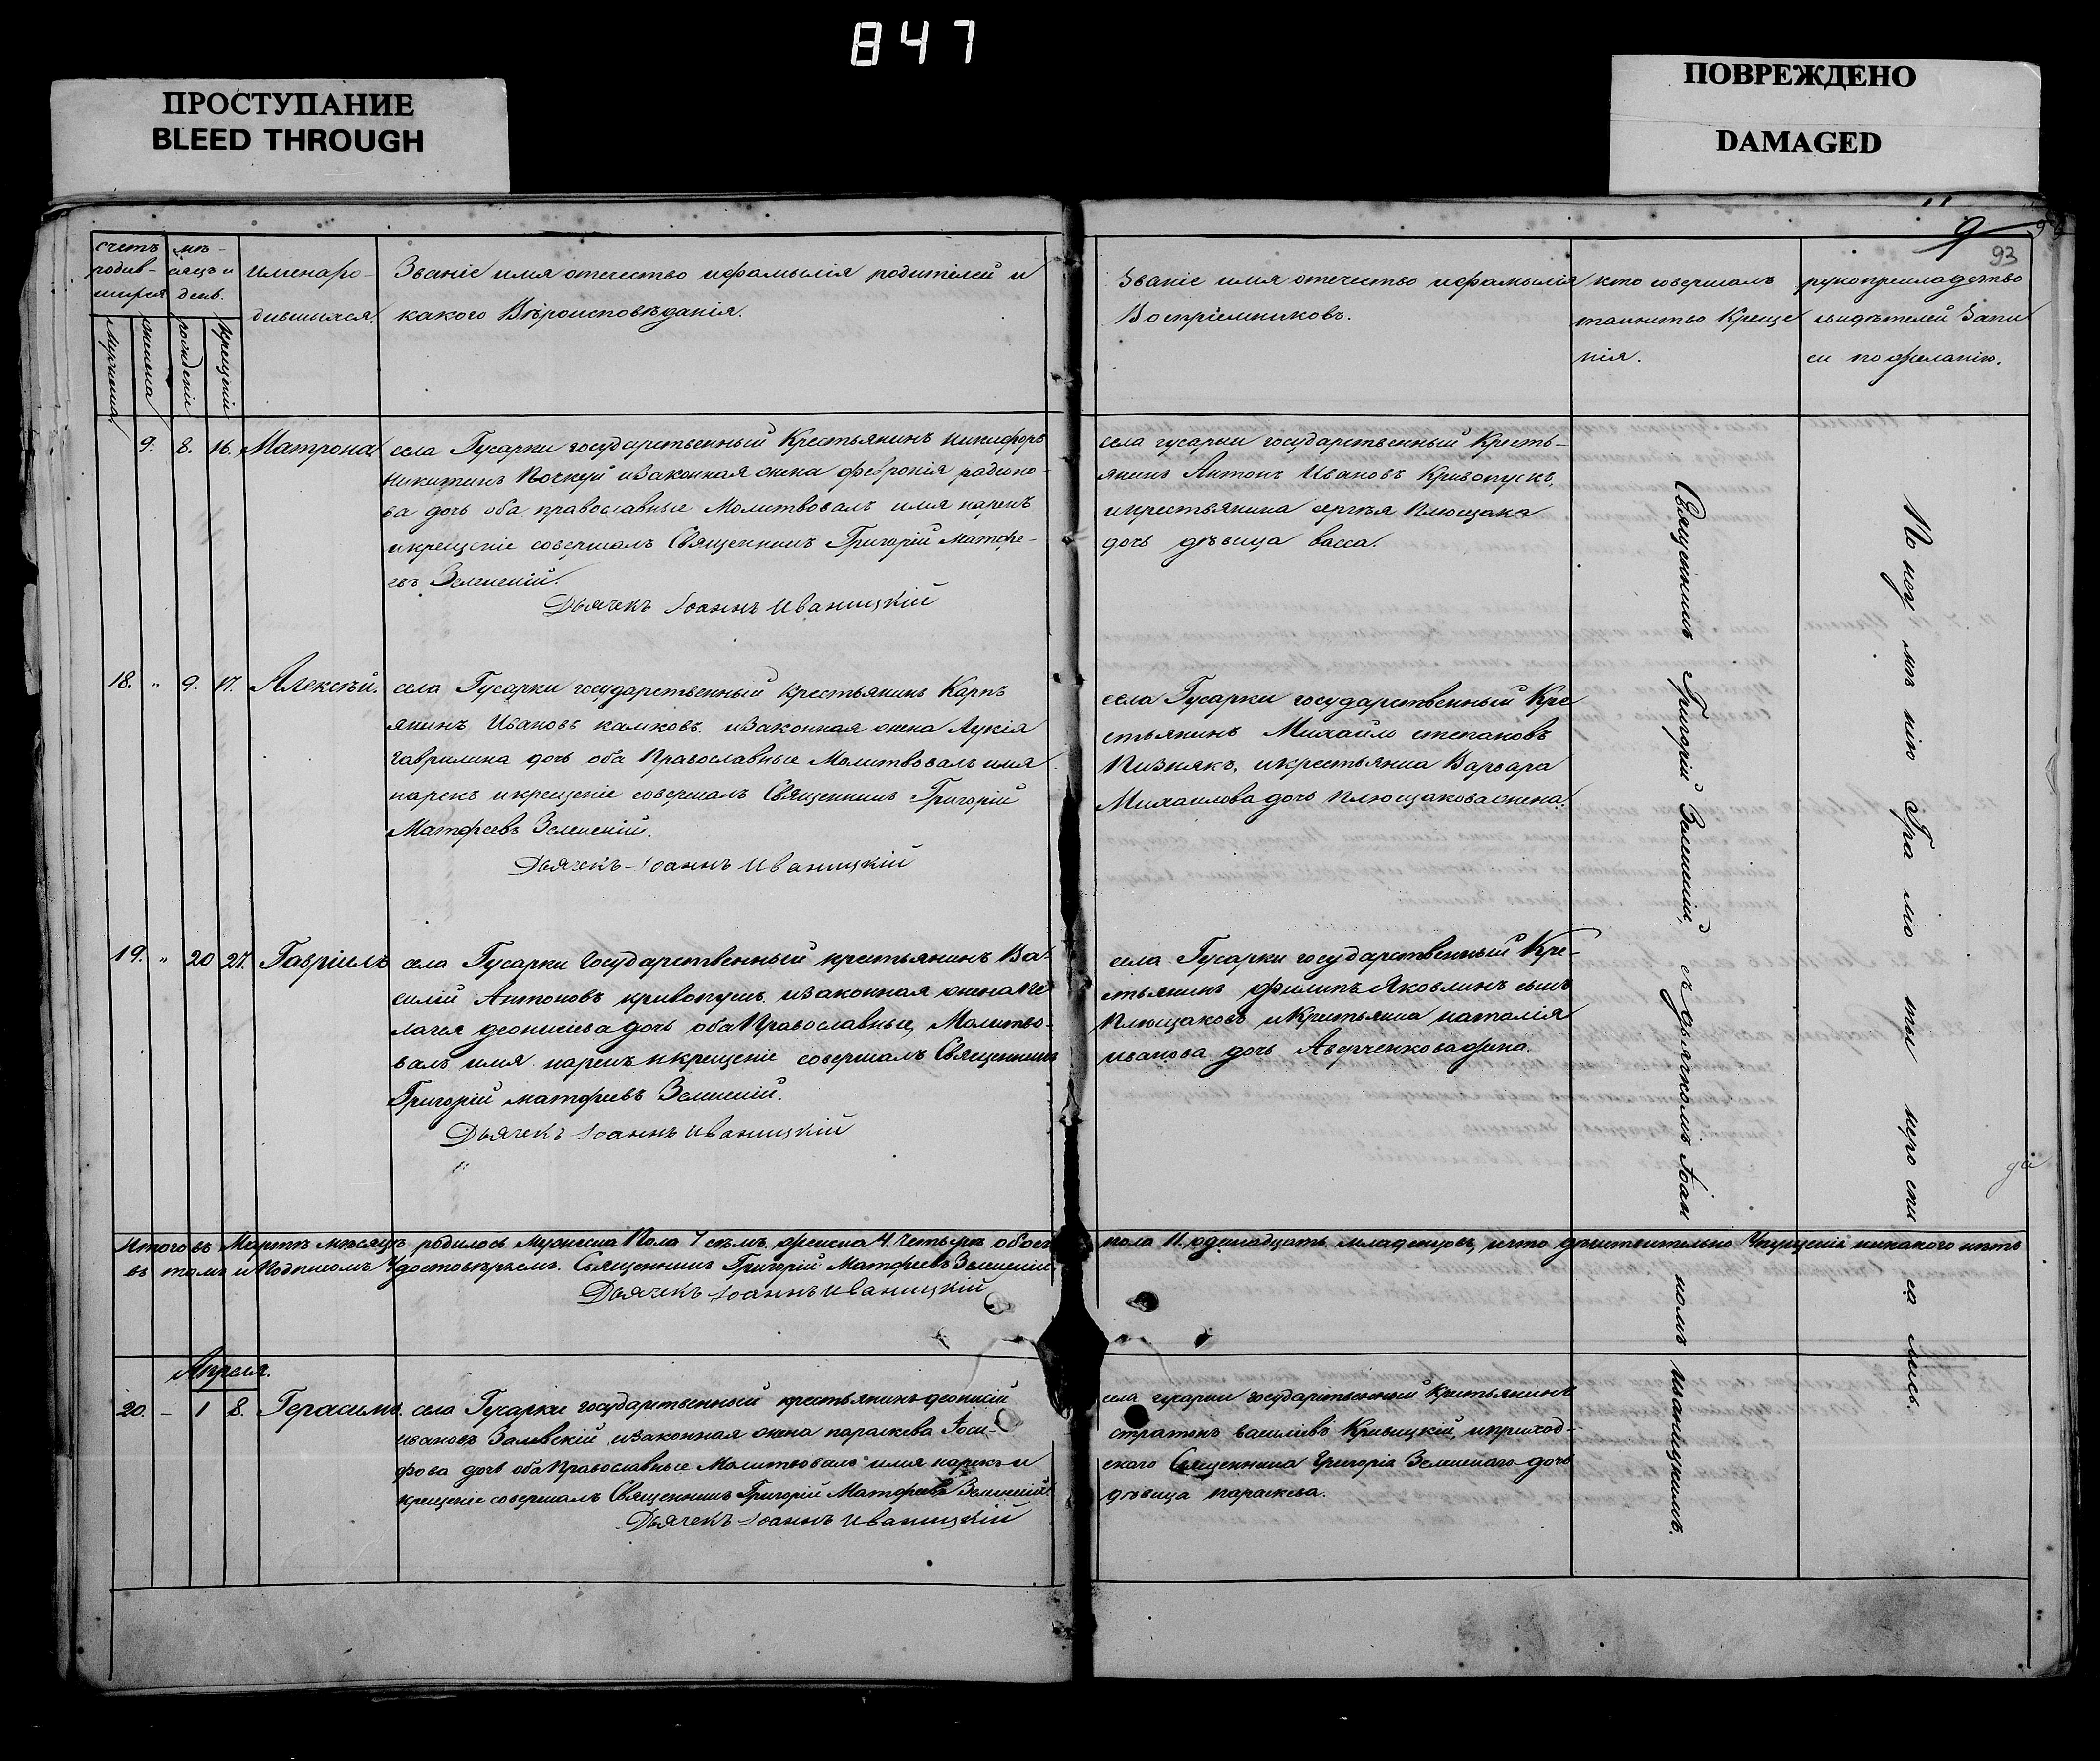 847
ПРОСТУПАНИЕ
BLEED THROUGH
ПОВРЕЖДЕНО
DAMAGED
9
93
счетъ родив-шихся
мѣ-сяцъ и день.
имена ро-
дившихся.
Званіе имя отечество и фамылія родителей и
какого Вѣроисповѣданія.
мужеска
женска
рожденія
крещенія
Званіе имя отечество и фамылія
Воспріемниковъ.
кто совершалъ
таинство Креще
нія.
рукоприкладство
свидѣтелей Запи
си по желанію.
9. 8. 16. Матрона
села Гусарки государственный Крестьянинъ никифоръ
никитинъ Почкуй и Законная жена февронія радионо-
ва дочь оба православные Молитвовалъ имя нарекъ
и крещеніе совершалъ Священникъ Григорій матфе-
евъ Зеленскій.
Дьячекъ Іоаннъ Иваницкій
села гусарки государственный Кресть-
янинъ Антонъ Ивановъ Кривопускъ,
и крестьянина сергѣя Плющака
дочь дѣвица васса.
18. " 9. 17. Алексѣй.
села Гусарки государственный крестьянинъ Карпъ
янинъ Ивановъ камковъ. и Законная жена Лукія
Гаврилина дочь оба Православные Молитвовалъ имя
нарекъ и крещеніе совершалъ Священникъ Григорій
Матфеевъ Зеленскій.
Дьячекъ Іоаннъ Иваницкій
села Гусарки государственный Кре
стьянинъ Михайло степановъ
Пизнякъ, и крестьянка Варвара
Михаилова дочь Плющакова жена.
19. " 20 27. Гавріилъ
села Гусарки Государственный крестьянинъ Ва-
силій Антоновъ кривопускъ и законная жена Пе
лагея деонисіева дочь оба Православные, Молитво-
валъ имя нарекъ и крещеніе совершалъ Священникъ
Григорій матфеевъ Зеленскій.
Дьячекъ Іоаннъ Иваницкій
села Гусарки государственный Кре-
стьянинъ филипъ Яковлинъ сынъ
Плющаковъ и Крестьянка наталія
иванова дочь Аверченкова жена.
Священникъ Григорій Зеленскій, съ дьячкомъ Іоан номъ иваницкимъ.
По неу мѣ нію Гра мо ты не ро спи са лись.
Итого въ Мартѣ мѣсяцѣ родилось мужеска Пола 7 семъ. женска 4. Четыре обоего
пола 11, одинадцать младенцовъ, и что дѣйствительно Упущенія никакого нѣтъ
въ томъ и Подписомъ Удостовѣряемъ. Священникъ Григорій Матфеевъ Зеленскій
Дьячекъ Іоаннъ Иваницкій
Апреля.
20. – 1 8. Герасимъ.
села Гусарки государственный крестьянинъ деонисій
ивановъ Залевскій и законная жена параскева Іоси-
фова дочь оба Православные Молитвовалъ имя нарекъ и
крещеніе совершалъ Священникъ Григорій Матфеевъ Зеленскій
Дьячекъ Іоаннъ Иваницкій
села гусарки государственный крестьянинъ
стратонъ василіевъ Кривицкій, и приход-
скаго Священника Григорія Зеленскаго дочь
дѣвица параскева.